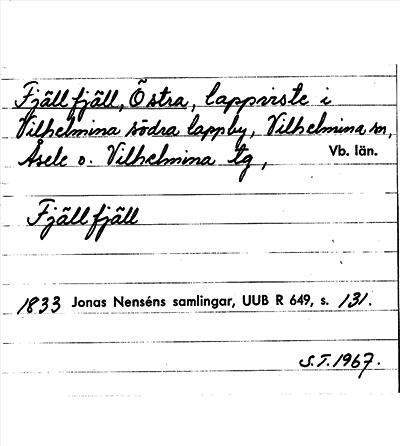 Fjällfjäll, Östra, lappviste i
Vilhelmina södra lappby, Vilhelmina sn,
Åsele o. Vilhelmina tg, Vb. län.
Fjällfjäll
1833 Jonas Nenséns samlingar, UUB R 649, s. 131.
S.T. 1967.